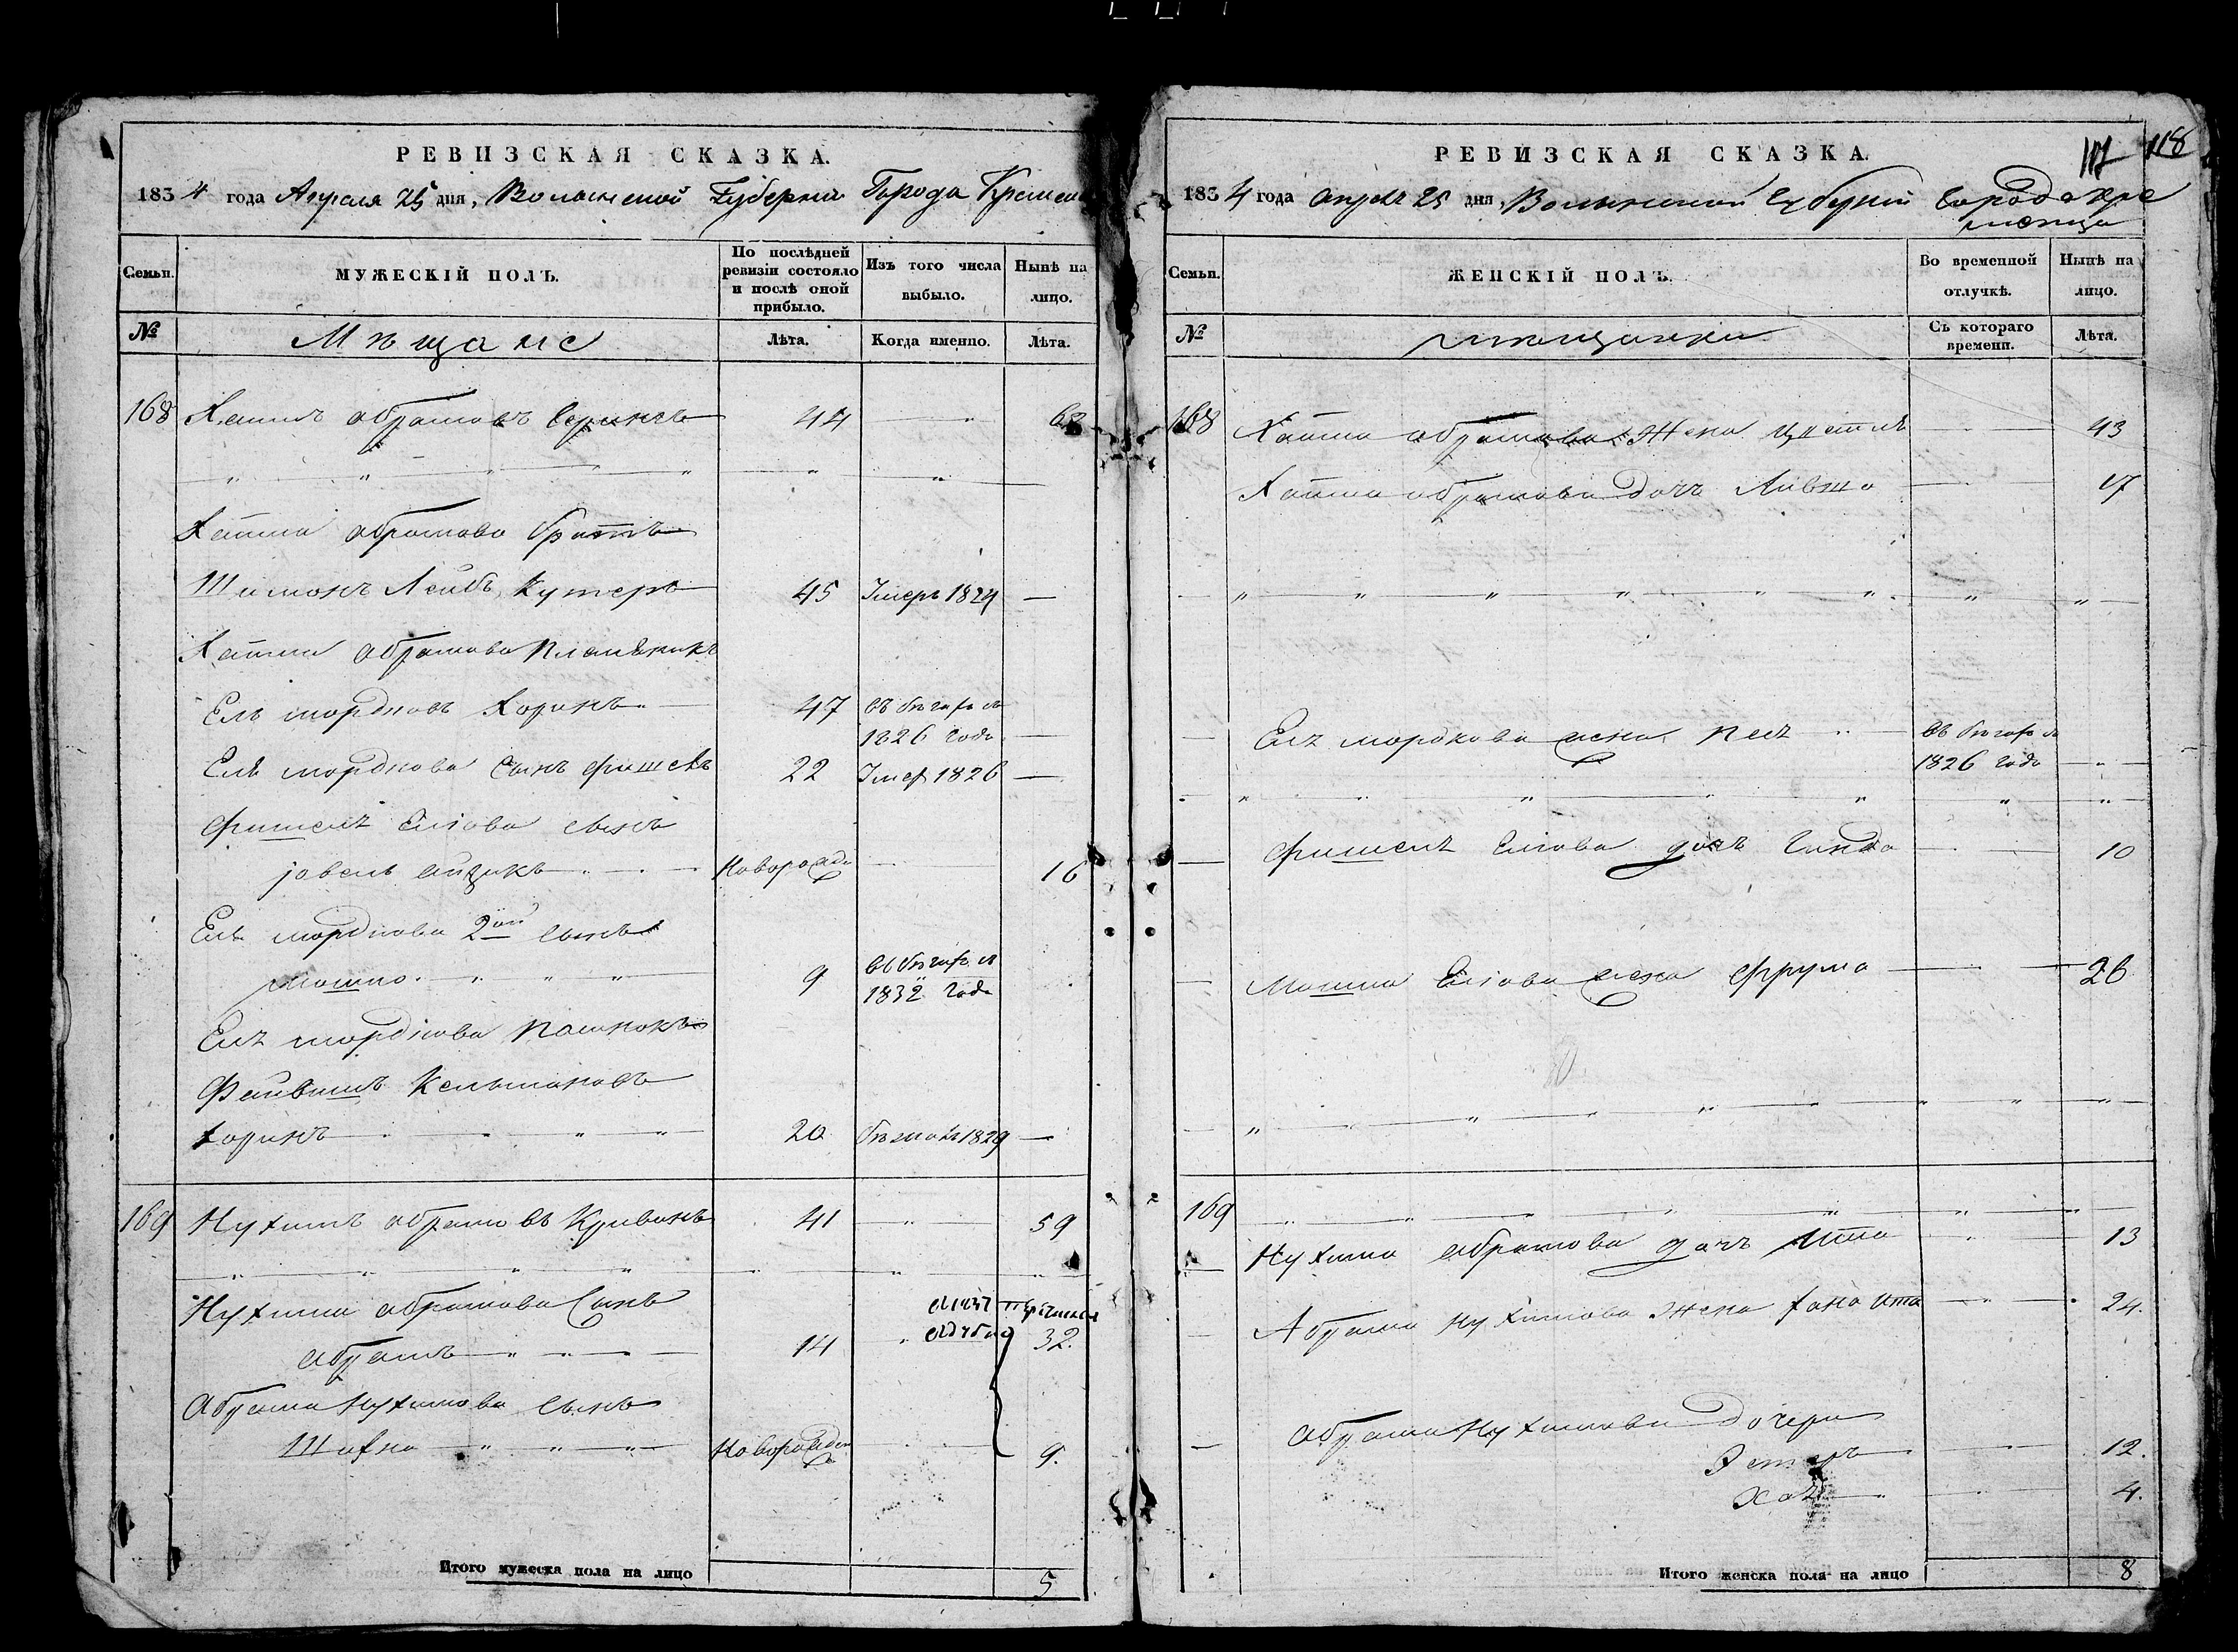 РЕВИЗСКАЯ СКАЗКА.
1834 года Апреля 25 дня, Волынской Губернии Города Кременца
Семьи.
МУЖЕСКІЙ ПОЛЪ.
По послѣдней ревизіи состояло и послѣ оной прибыло.
Изъ того числа выбыло.
Нынѣ на лицо.
№
Мѣщане
Лѣта.
Когда именно.
Лѣта.
168 Хаимъ Абрамовъ 44 — 62
Хаима Абрамова братъ
Шимонъ Лейбъ Кутеръ 45 Умеръ 1824 —
Хаима Абрамова племяникъ
Ель Мордковъ Хоринъ 47 въ бѣгахъ съ
1826 года —
Еля Мордкова сынъ Фишель 22 Умеръ 1826 —
Фишель Еліова сынъ
Іовель Айзикъ Новорожде — 16
Ель Мордкова 2ой сынъ
Мошко 9 въ бѣгахъ съ
1832 года
Ель Мордкова
Файвишъ Кельмановъ
Хоринъ 20 1829 —
169 Нухимъ Абрамовъ Кривинъ 41 — 59
Нухима Абрамова сынъ
Абрамъ 14 32.
Абрама Нухимова сынъ
Шахна Новорожден 9.
Итого мужеска пола на лицо 5
РЕВИЗСКАЯ СКАЗКА.
118
1834 года апреля 25 дня, Волынской Губерніи Города Кре
менца
Семьи.
ЖЕНСКІЙ ПОЛЪ.
Во временной отлучкѣ.
Нынѣ на лицо.
№
мѣщанки
Съ котораго времени.
Лѣта.
168 Хаима Абрамова Жена 43
Хаима Абрамова дочь Ливша 17
Ель Мордкова жена въ бѣгахъ съ
1826 года —
Фишель Еліова дочь Гинда 10
Мошка Еліова жена Фрума 26
169
Нухима Абрамова дочь Итта 13
Абрама Нухимова Жена Хана Ита 24.
Абрама Нухимова Дочери
Эстеръ 12.
Хая 4.
Итого женска пола на лицо 8